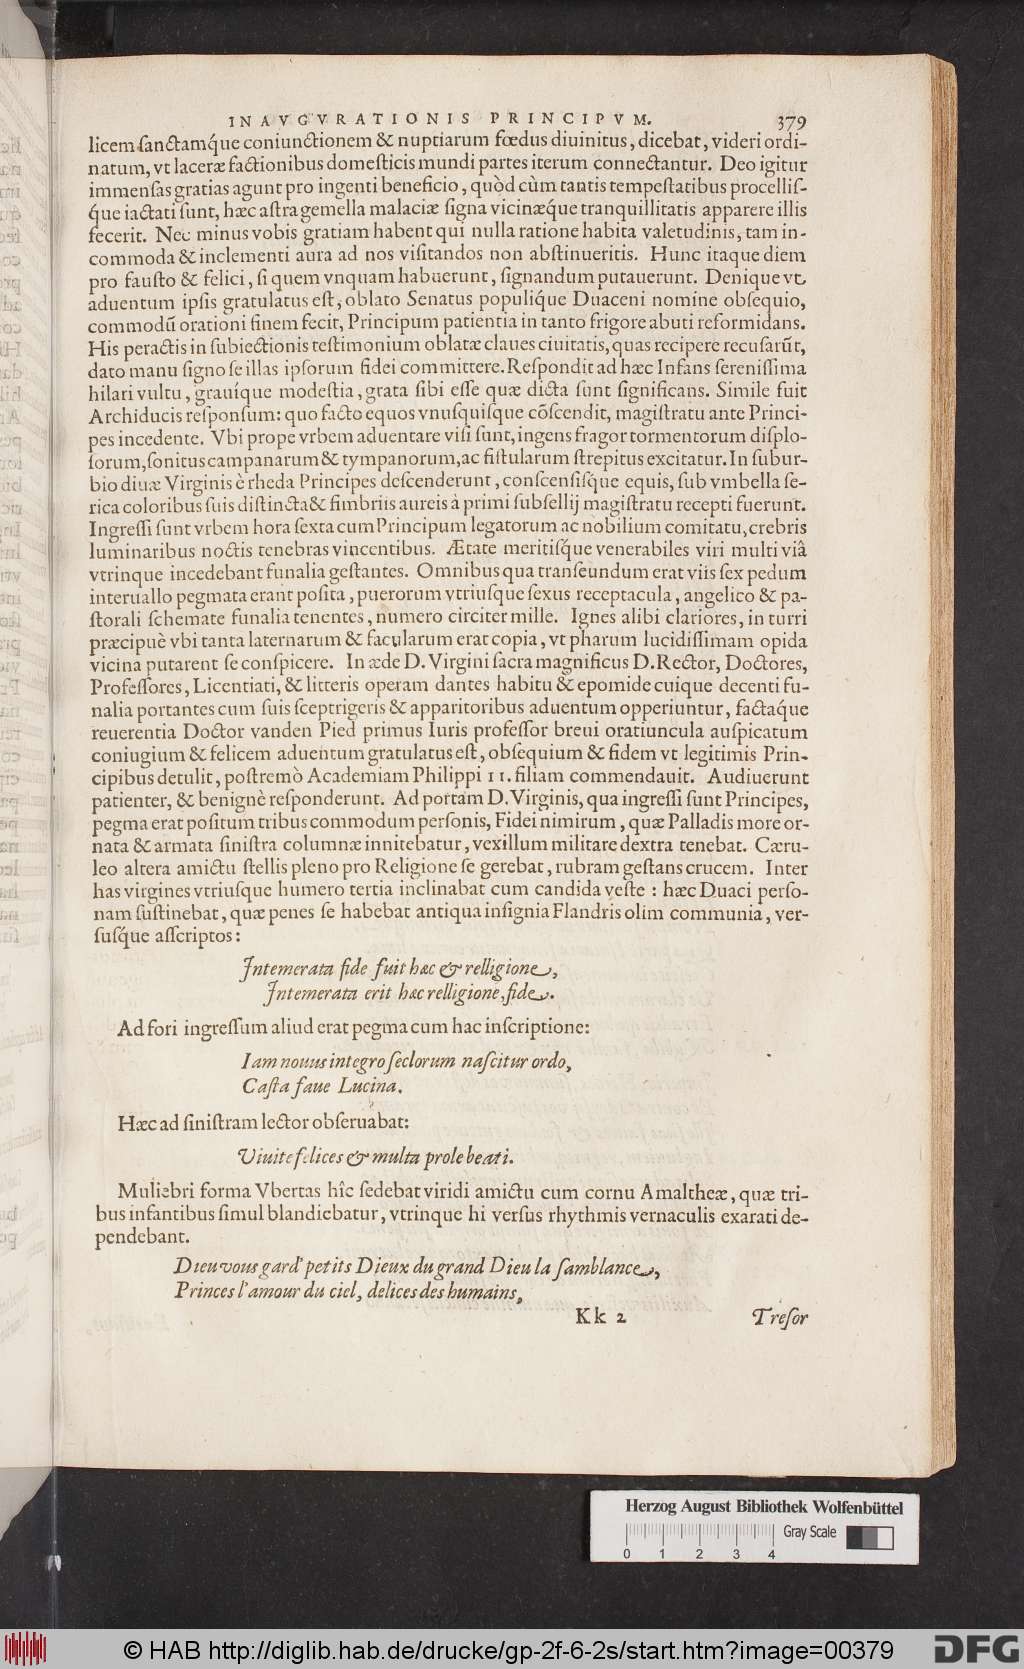 INAVGVRATIONIS PRINCIPVM. 379
licem ſanctamq́ue coniunctionem & nuptiarum fœdus diuinitus, dicebat, videri ordi-
natum, vt laceræ factionibus domeſticis mundi partes iterum connectantur. Deo igitur
immenſas gratias agunt pro ingenti beneficio, quòd cùm tantis tempeſtatibus procelliſ-
q́ue iactati ſunt, hæc aſtra gemella malaciæ ſigna vicinæq́ue tranquillitatis apparere illis
fecerit. Nec minus vobis gratiam habent qui nulla ratione habita valetudinis, tam in-
commoda & inclementi aura ad nos viſitandos non abſtinueritis. Hunc itaque diem
pro fauſto & felici, ſi quem vnquam habuerunt, ſignandum putauerunt. Denique vt
aduentum ipſis gratulatus eſt, oblato Senatus populiq́ue Duaceni nomine obſequio,
commodũ orationi finem fecit, Principum patientia in tanto frigore abuti reformidans.
His peractis in ſubiectionis teſtimonium oblatæ claues ciuitatis, quas recipere recuſarũt,
dato manu ſigno ſe illas ipſorum fidei committere. Reſpondit ad hæc Infans ſereniſſima
hilari vultu, grauíque modeſtia, grata ſibi eſſe quæ dicta ſunt ſignificans. Simile fuit
Archiducis reſponſum: quo facto equos vnuſquiſque cõſcendit, magiſtratu ante Princi-
pes incedente. Vbi prope vrbem aduentare viſi ſunt, ingens fragor tormentorum diſplo-
ſorum, ſonitus campanarum & tympanorum, ac fiſtularum ſtrepitus excitatur. In ſubur-
bio diuæ Virginis è rheda Principes deſcenderunt, conſcenſiſq́ue equis, ſub vmbella ſe-
rica coloribus ſuis diſtincta & fimbriis aureis à primi ſubſellij magiſtratu recepti fuerunt.
Ingreſſi ſunt vrbem hora ſexta cum Principum legatorum ac nobilium comitatu, crebris
luminaribus noctis tenebras vincentibus. Ætate meritiſq́ue venerabiles viri multi viâ
vtrinque incedebant funalia geſtantes. Omnibus qua tranſeundum erat viis ſex pedum
interuallo pegmata erant poſita, puerorum vtriuſque ſexus receptacula, angelico & pa-
ſtorali ſchemate funalia tenentes, numero circiter mille. Ignes alibi clariores, in turri
præcipuè vbi tanta laternarum & facularum erat copia, vt pharum lucidiſſimam opida
vicina putarent ſe conſpicere. In æde D. Virgini ſacra magnificus D. Rector, Doctores,
Profeſſores, Licentiati, & litteris operam dantes habitu & epomide cuique decenti fu-
nalia portantes cum ſuis ſceptrigeris & apparitoribus aduentum opperiuntur, factaq́ue
reuerentia Doctor vanden Pied primus Iuris profeſſor breui oratiuncula auſpicatum
coniugium & felicem aduentum gratulatus eſt, obſequium & fidem vt legitimis Prin-
cipibus detulit, poſtremò Academiam Philippi II. filiam commendauit. Audiuerunt
patienter, & benignè reſponderunt. Ad portam D. Virginis, qua ingreſſi ſunt Principes,
pegma erat poſitum tribus commodum perſonis, Fidei nimirum, quæ Palladis more or-
nata & armata ſiniſtra columnæ innitebatur, vexillum militare dextra tenebat. Cæru-
leo altera amictu ſtellis pleno pro Religione ſe gerebat, rubram geſtans crucem. Inter
has virgines vtriuſque humero tertia inclinabat cum candida veſte : hæc Duaci perſo-
nam ſuſtinebat, quæ penes ſe habebat antiqua inſignia Flandris olim communia, ver-
ſuſq́ue aſſcriptos:
Intemerata fide fuit hæc & relligione,
Intemerata erit hæc relligione, fide.
Ad fori ingreſſum aliud erat pegma cum hac inſcriptione:
Iam nouus integro ſeclorum naſcitur ordo,
Caſta faue Lucina.
Hæc ad ſiniſtram lector obſeruabat:
Viuite felices & multa prole beati.
Muliebri forma Vbertas hîc ſedebat viridi amictu cum cornu Amaltheæ, quæ tri-
bus infantibus ſimul blandiebatur, vtrinque hi verſus rhythmis vernaculis exarati de-
pendebant.
Dieu vous gard' petits Dieux du grand Dieu la ſamblance,
Princes l'amour du ciel, delices des humains,
Kk 2 Treſor
Herzog August Bibliothek Wolfenbüttel
Gray Scale
0 1 2 3 4
© HAB http://diglib.hab.de/drucke/gp-2f-6-2s/start.htm?image=00379 DFG